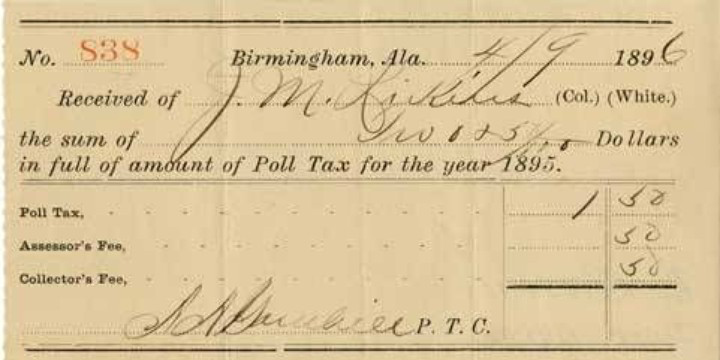 No. 838 Birmingham, Ala. 4/9 1896
Received of J. M. (Col.) (White.)
the sum of Two & 5 Dollars
in full of amount of Poll Tax for the year 1895.
Poll Tax, 1 50
Assessor's Fee, 50
Collector's Fee, 50
P. T. C.